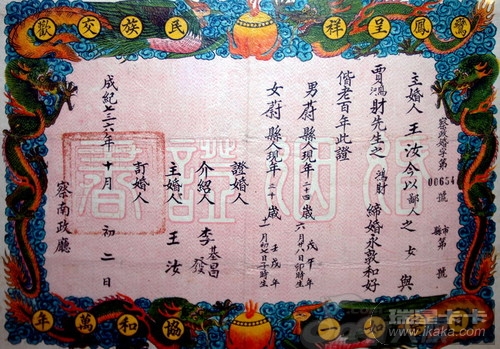 鸞鳳呈祥
民族交歡
察政婚字第00654號
縣市第 號
主婚人王汝今以鄙人之女與
賈鴻財先生之鴻財締婚永敦和好
偕老百年此證
男蔚縣人現年二十四歲戊午年六月廿八日卯時生
女蔚縣人現年二十歲壬戌年十一月初七日子時生
證婚人
介紹人 李基昌發
主婚人 王汝
訂婚人
成紀七三六年十月初二日
察南政廳
婚姻證書
一
協和萬年
瑞星卡卡
www.ikaka.com